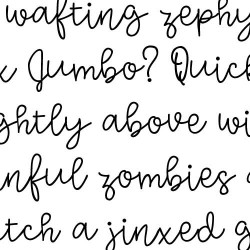 wafting zephy
x Jumbo? Quick
ghtly above wi
inful zombies
atch a jinxed g